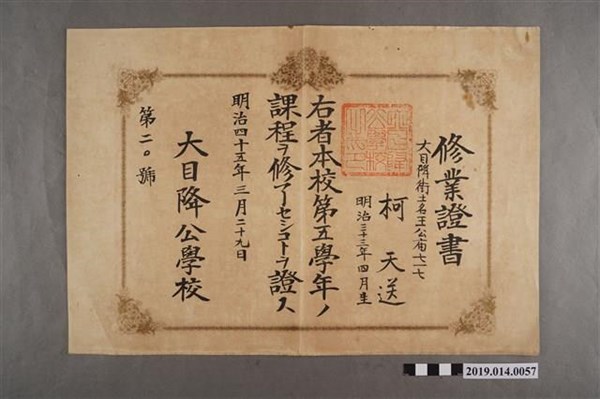 修業證書
大目降街土名王公廟七一七
柯天送
明治三十三年四月生
右者本校第五學年ノ
課程ヲ修了セシコトヲ證ス
明治四十五年三月二十九日
大目降公學校
第二〇號
2019.014.0057